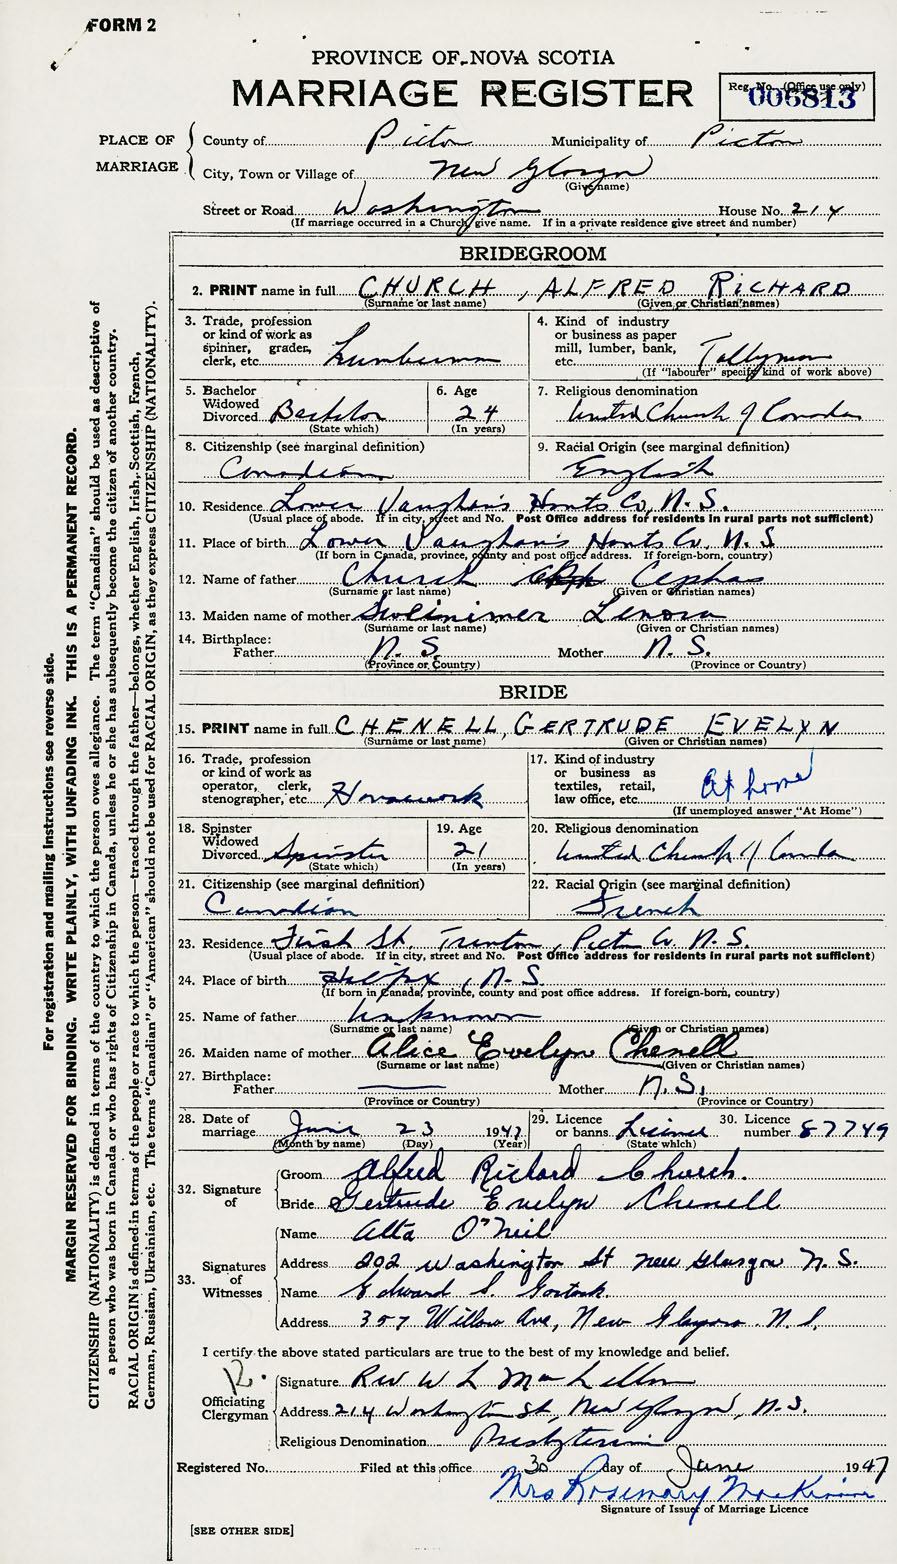 FORM 2
PROVINCE OF NOVA SCOTIA
MARRIAGE REGISTER
Reg. No. (Office use only)
006813
PLACE OF MARRIAGE
County of Pictou Municipality of Pictou
City, Town or Village of New Glasgow
(Give name)
Street or Road Washington House No. 214
(If marriage occurred in a Church give name. If in a private residence give street and number)
BRIDEGROOM
2. PRINT name in full CHURCH, ALFRED RICHARD
(Surname or last name) (Given or Christian names)
3. Trade, profession or kind of work as spinner, grader, clerk, etc. Lumberman
4. Kind of industry or business as paper mill, lumber, bank, etc. Tallyman
(If "labourer" specify kind of work above)
5. Bachelor Widowed Divorced Bachelor
(State which)
6. Age 24
(In years)
7. Religious denomination United Church of Canada
8. Citizenship (see marginal definition) Canadian
9. Racial Origin (see marginal definition) English
10. Residence Lower Vaughan's Hants Co, N.S.
(Usual place of abode. If in city, street and No. Post Office address for residents in rural parts not sufficient)
11. Place of birth Lower Vaughan's Hants Co. N.S
(If born in Canada, province, county and post office address. If foreign-born, country)
12. Name of father Church Cephas
(Surname or last name) (Given or Christian names)
13. Maiden name of mother Lenora
(Surname or last name) (Given or Christian names)
14. Birthplace: Father N.S. Mother N.S.
(Province or Country) (Province or Country)
BRIDE
15. PRINT name in full CHENELL, GERTRUDE EVELYN
(Surname or last name) (Given or Christian names)
16. Trade, profession or kind of work as operator, clerk, stenographer, etc. Housework
17. Kind of industry or business as textiles, retail, law office, etc. At home
(If unemployed answer "At Home")
18. Spinster Widowed Divorced Spinster
(State which)
19. Age 21
(In years)
20. Religious denomination United Church of Canada
21. Citizenship (see marginal definition) Canadian
22. Racial Origin (see marginal definition) French
23. Residence First St. Trenton, Pictou Co. N.S.
(Usual place of abode. If in city, street and No. Post Office address for residents in rural parts not sufficient)
24. Place of birth Halifax, N.S
(If born in Canada, province, county and post office address. If foreign-born, country)
25. Name of father Unknown
(Surname or last name) (Given or Christian names)
26. Maiden name of mother Alice Evelyn Chenell
(Surname or last name) (Given or Christian names)
27. Birthplace: Father — Mother N.S.
(Province or Country) (Province or Country)
28. Date of marriage June 23 1947
(Month by name) (Day) (Year)
29. Licence or banns License
(State which)
30. Licence number 87749
32. Signature of
Groom Alfred Richard Church.
Bride Gertrude Evelyn Chenell
33. Signatures of Witnesses
Name Alta O'Neil
Address 202 Washington St New Glasgow N.S.
Name Edward S.
Address 357 Willow Ave, New Glasgow N.S.
I certify the above stated particulars are true to the best of my knowledge and belief.
Officiating Clergyman
Signature Rev W L MacLellan
Address 214 Washington St, New Glasgow, N.S.
Religious Denomination Presbyterian
Registered No. Filed at this office 30 day of June 1947
Mrs Rosemary MacKinnon
Signature of Issuer of Marriage Licence
[SEE OTHER SIDE]
For registration and mailing instructions see reverse side.
MARGIN RESERVED FOR BINDING. WRITE PLAINLY, WITH UNFADING INK. THIS IS A PERMANENT RECORD.
CITIZENSHIP (NATIONALITY) is defined in terms of the country to which the person owes allegiance. The term "Canadian" should be used as descriptive of
a person who was born in Canada or who has rights of Citizenship in Canada, unless he or she has subsequently become the citizen of another country.
RACIAL ORIGIN is defined in terms of the people or race to which the person—traced through the father—belongs, whether English, Irish, Scottish, French,
German, Russian, Ukrainian, etc. The terms "Canadian" or "American" should not be used for RACIAL ORIGIN, as they express CITIZENSHIP (NATIONALITY).